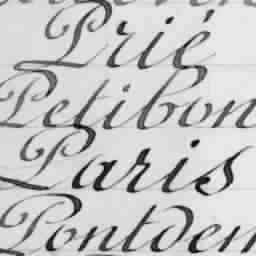 Prié
Petibon
Paris
Pontden